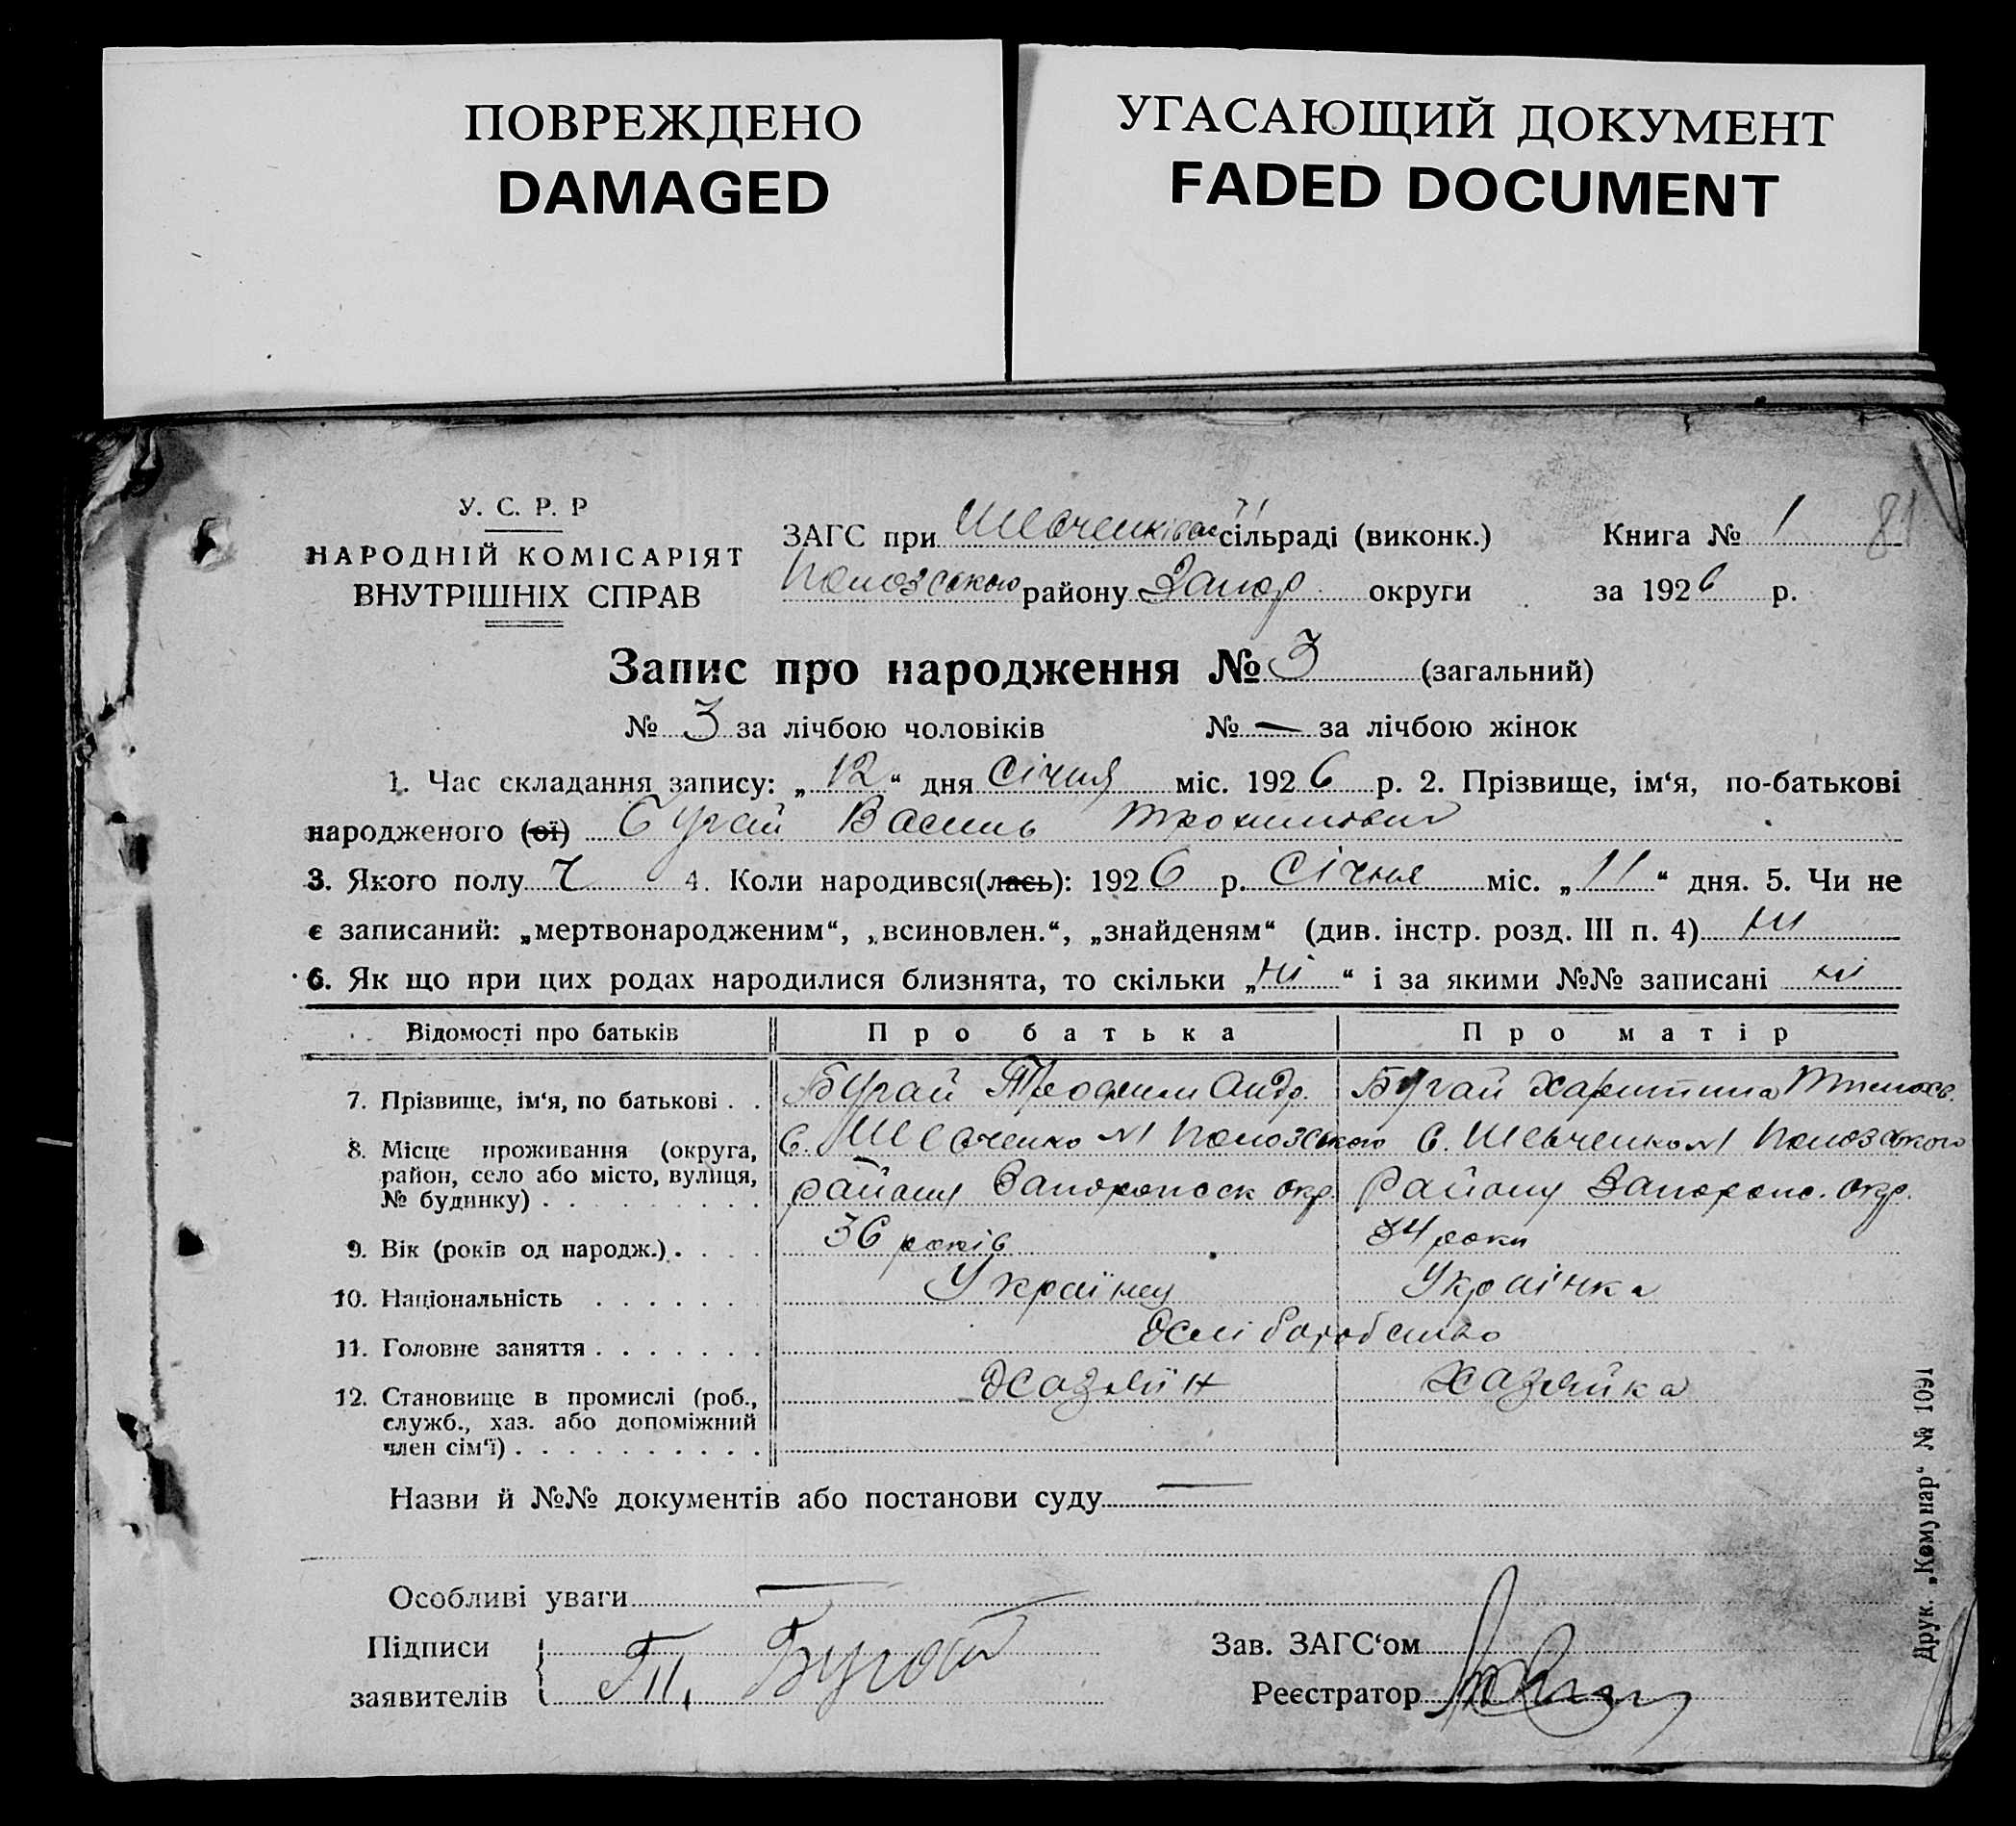 ПОВРЕЖДЕНО
DAMAGED
УГАСАЮЩИЙ ДОКУМЕНТ
FADED DOCUMENT
У. С. Р. Р
НАРОДНІЙ КОМІСАРІЯТ
ВНУТРІШНІХ СПРАВ
ЗАГС при Шевченківській сільраді (виконк.)
Пологського району Запор. округи
Книга № 1 81
за 1926 р.
Запис про народження № 3 (загальний)
№ 3 за лічбою чоловіків № — за лічбою жінок
1. Час складання запису: „12“ дня Січня міс. 1926 р. 2. Прізвище, ім‘я, по-батькові
народженого (ої) Бугай Василь Трохимович
3. Якого полу Ч 4. Коли народився(лась): 1926 р. Січня міс. „11“ дня. 5. Чи не
є записаний: „мертвонародженим“, „всиновлен.“, „знайденям“ (див. інстр. розд. III п. 4) ні
6. Як що при цих родах народилися близнята, то скільки „ні“ і за якими №№ записані ні
Відомості про батьків Про батька Про матір
7. Прізвище, ім‘я, по батькові . . Бугай Трофим Андр. Бугай Харитина
8. Місце проживання (округа, С. Шевченко №1 С. Шевченко №1
район, село або місто, вулиця, району окр. району окр.
№ будинку) . . . . . . . . .
9. Вік (років од народж.) . . . . 36 років 34 роки
10. Національність . . . . . . Українец Українка
11. Головне заняття . . . . . . . хліборобство
12. Становище в промислі (роб., Хазяїн Хазяйка
служб., хаз. або допоміжний
член сім‘ї) . . . . . . . . . .
Назви й №№ документів або постанови суду —
Особливі уваги —
Підписи
заявителів Бугай
Зав. ЗАГС‘ом
Реєстратор
Друк. „Комунар“ № 1091